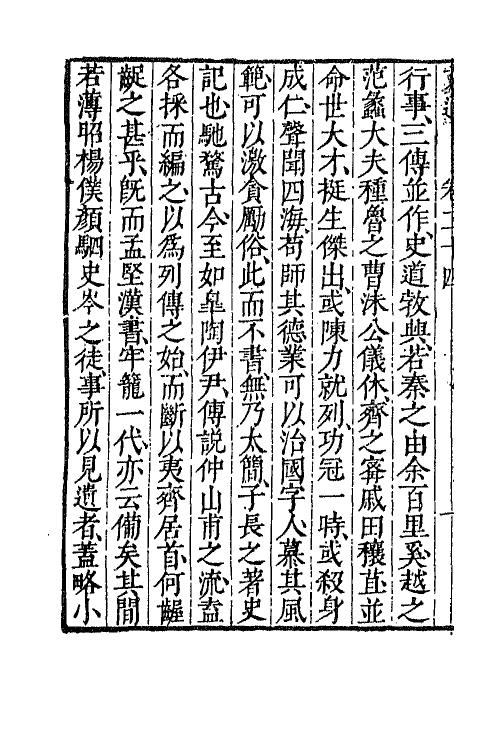 卷二十四
行事三傳並作史道敦興若秦之由余百里奚越之
范蠡大夫種魯之曹沫公儀休齊之甯戚田穰苴並
命世大才挺生傑出或陳力就列功冠一時或殺身
成仁聲聞四海苟師其德業可以治國字人慕其風
範可以激貪勵俗此而不書無乃太簡子長之著史
記也馳騖古今至如臯陶伊尹傳說仲山甫之流並
各採而編之以爲列傳之始而斷以夷齊居首何齷
齪之甚乎旣而孟堅漢書牢籠一代亦云備矣其間
若薄昭楊僕顏駟史岑之徒事所以見遺者蓋略小